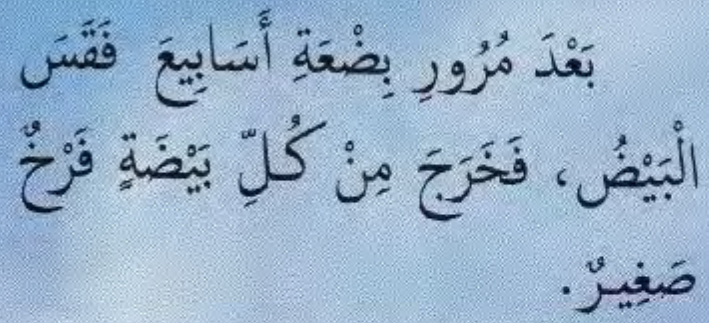 بَعْدَ مُرُورِ بِضْعَةِ أَسَابِيعَ فَقَسَ
الْبَيْضُ، فَخَرَجَ مِنْ كُلِّ بَيْضَةٍ فَرْخٌ
صَغِيرٌ.